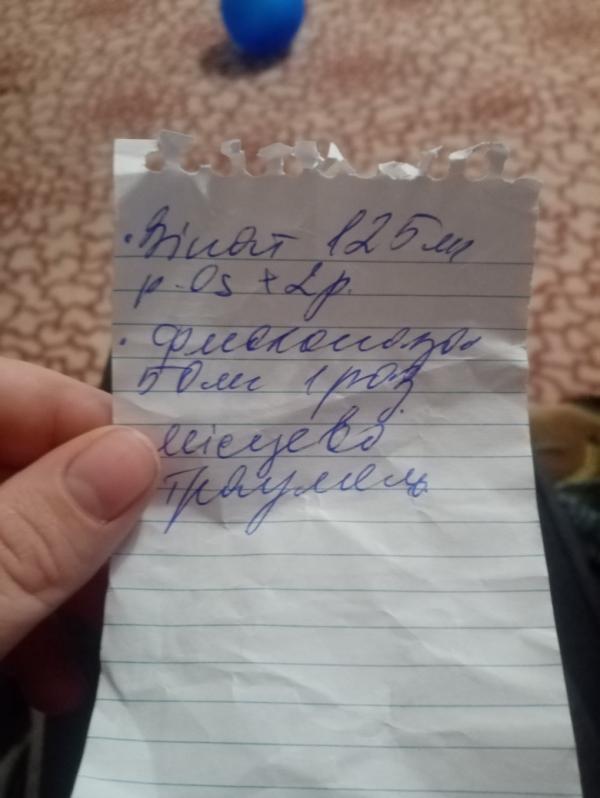 · Зінат 125 мг
p-os × 2 р.
· флюконазол
50 мг 1 раз
місцево
Траумель